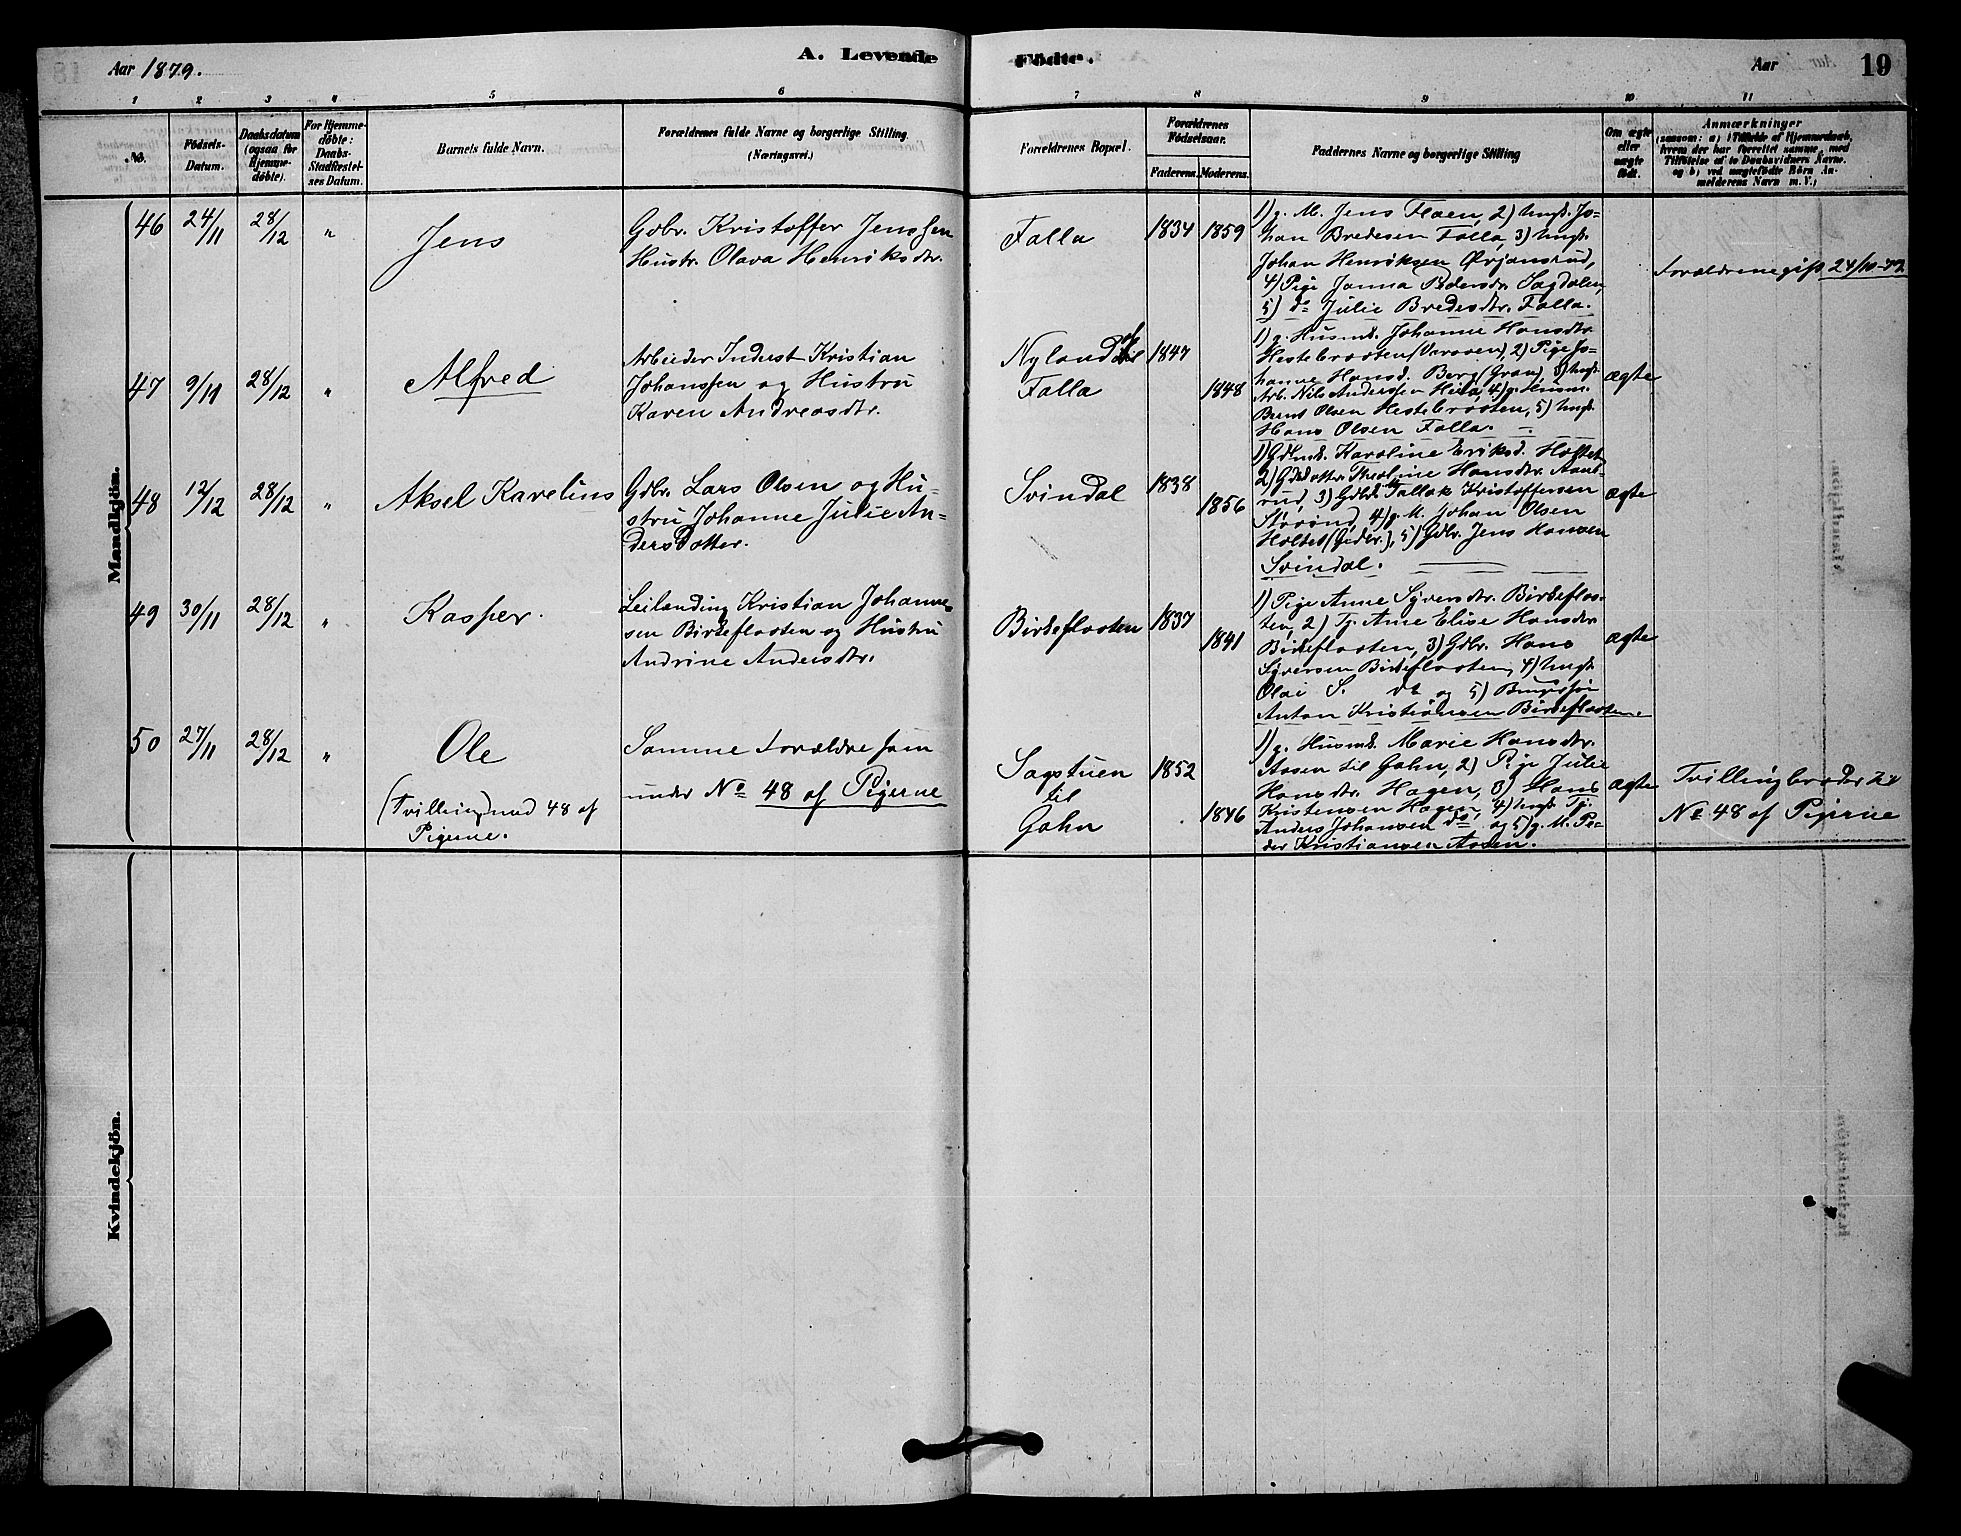 Aar 1879.
A. Levende Födte.
Aar
19
1 2 3 4 5 6 7 8 9 10 11
No.
Födsels-
Datum.
Daabsdatum
(ogsaa for
Hjemme-
döbte).
For Hjemme-
döbte:
Daabs-
Stadfestel-
ses Datum.
Barnets fulde Navn.
Forældrenes fulde Navne og borgerlige Stilling
(Næringsvei.)
Forældrenes Bopæl.
Forældrenes
Födselsaar.
Faderens. Moderens.
Faddernes Navne og borgerlige Stilling
Om ægte
eller
uægte
født.
Anmærkninger
(saasom: a) i Tilfælde af Hjemmedaab,
hvem der har forrettet samme, med
Tilföielse af to Daabsvidners Navne.
og b) ved uægtefödte Börn An-
melderens Navn m. V.)
Mandkjön.
46 24/11 28/12 "
Jens
Gdbr. Kristoffer Jenssen
Hustr. Olava Henriksdtr.
Falla
1834 1859
1) g. M. Jens Floen, 2) Ungk. Jo-
han Bredesen Falla, 3) Ungk.
Johan Henriksen Ørjansrud,
4) Pige Janna Pedersdtr. Sagdalen,
5) do Julie Bredesdtr. Falla.
Forældrene gift 24/10-79
47 9/11 28/12 "
Alfred
Arbeider Indust Kristian
Johanssen og Hustru
Karen Andreasdtr.
Nyland
Falla
1847
1848
1) g. Husmk. Johanne Hansdtr.
Hestebraaten 2) Pige Jo-
hanne Hansd. Berg (Gran), 3) Ungk.
Arb. Nils Anderssen 4) g. Husm.
Bernt Olsen Hestebraaten, 5) Ungk.
Hans Olsen Falla.
ægte
48 12/12 28/12 "
Aksel Karelius
Gdbr. Lars Olsen og Hu-
stru Johanne Julie An-
dersdatter.
Svindal
1838
1856
1) Gdmk. Karoline Eriksd. Holtet
2) Gdrdatter Hansdtr.
rud, 3) Gdbr. Tallak Kristoffersen
4) g. M. Johan Olsen
Holtet (Gdbr.), 5) Gdbr. Jens Hansen
Svindal.
ægte
49 30/11 28/12 "
Kasper.
Leilænding Kristian Johanne-
sen Birkeflaaten og Hustru
Andrine Andersdtr.
Birkeflaaten
1837
1841
1) Pige Anne Syversdtr. Birkeflaa-
ten, 2) Tj. Anne Elise Hansdtr.
Birkeflaaten, 3) Gdbr. Hans
Syversen Birkeflaaten, 4) Ungk.
Olai S. do og 5)
Anton Kristiansen Birkeflaaten.
ægte
50 27/11 28/12 "
Ole
(Tvilling med 48 af
Pigerne.
Samme Forældre som
under No 48 af Pigerne
Sagstuen
til
Gahn
1852
1846
1) g. Husmk. Marie Hansdtr.
Aasen til Gahn, 2) Pige Julie
Hansdtr. Hagen, 3) Hans
Kristensen Hagen, 4) Ungk. Tj.
Anders Johansen do, og 5) g. M. Pe-
der Kristiansen Aasen.
ægte
Tvillingbroder til
No 48 af Pigerne
Kvindekjön.